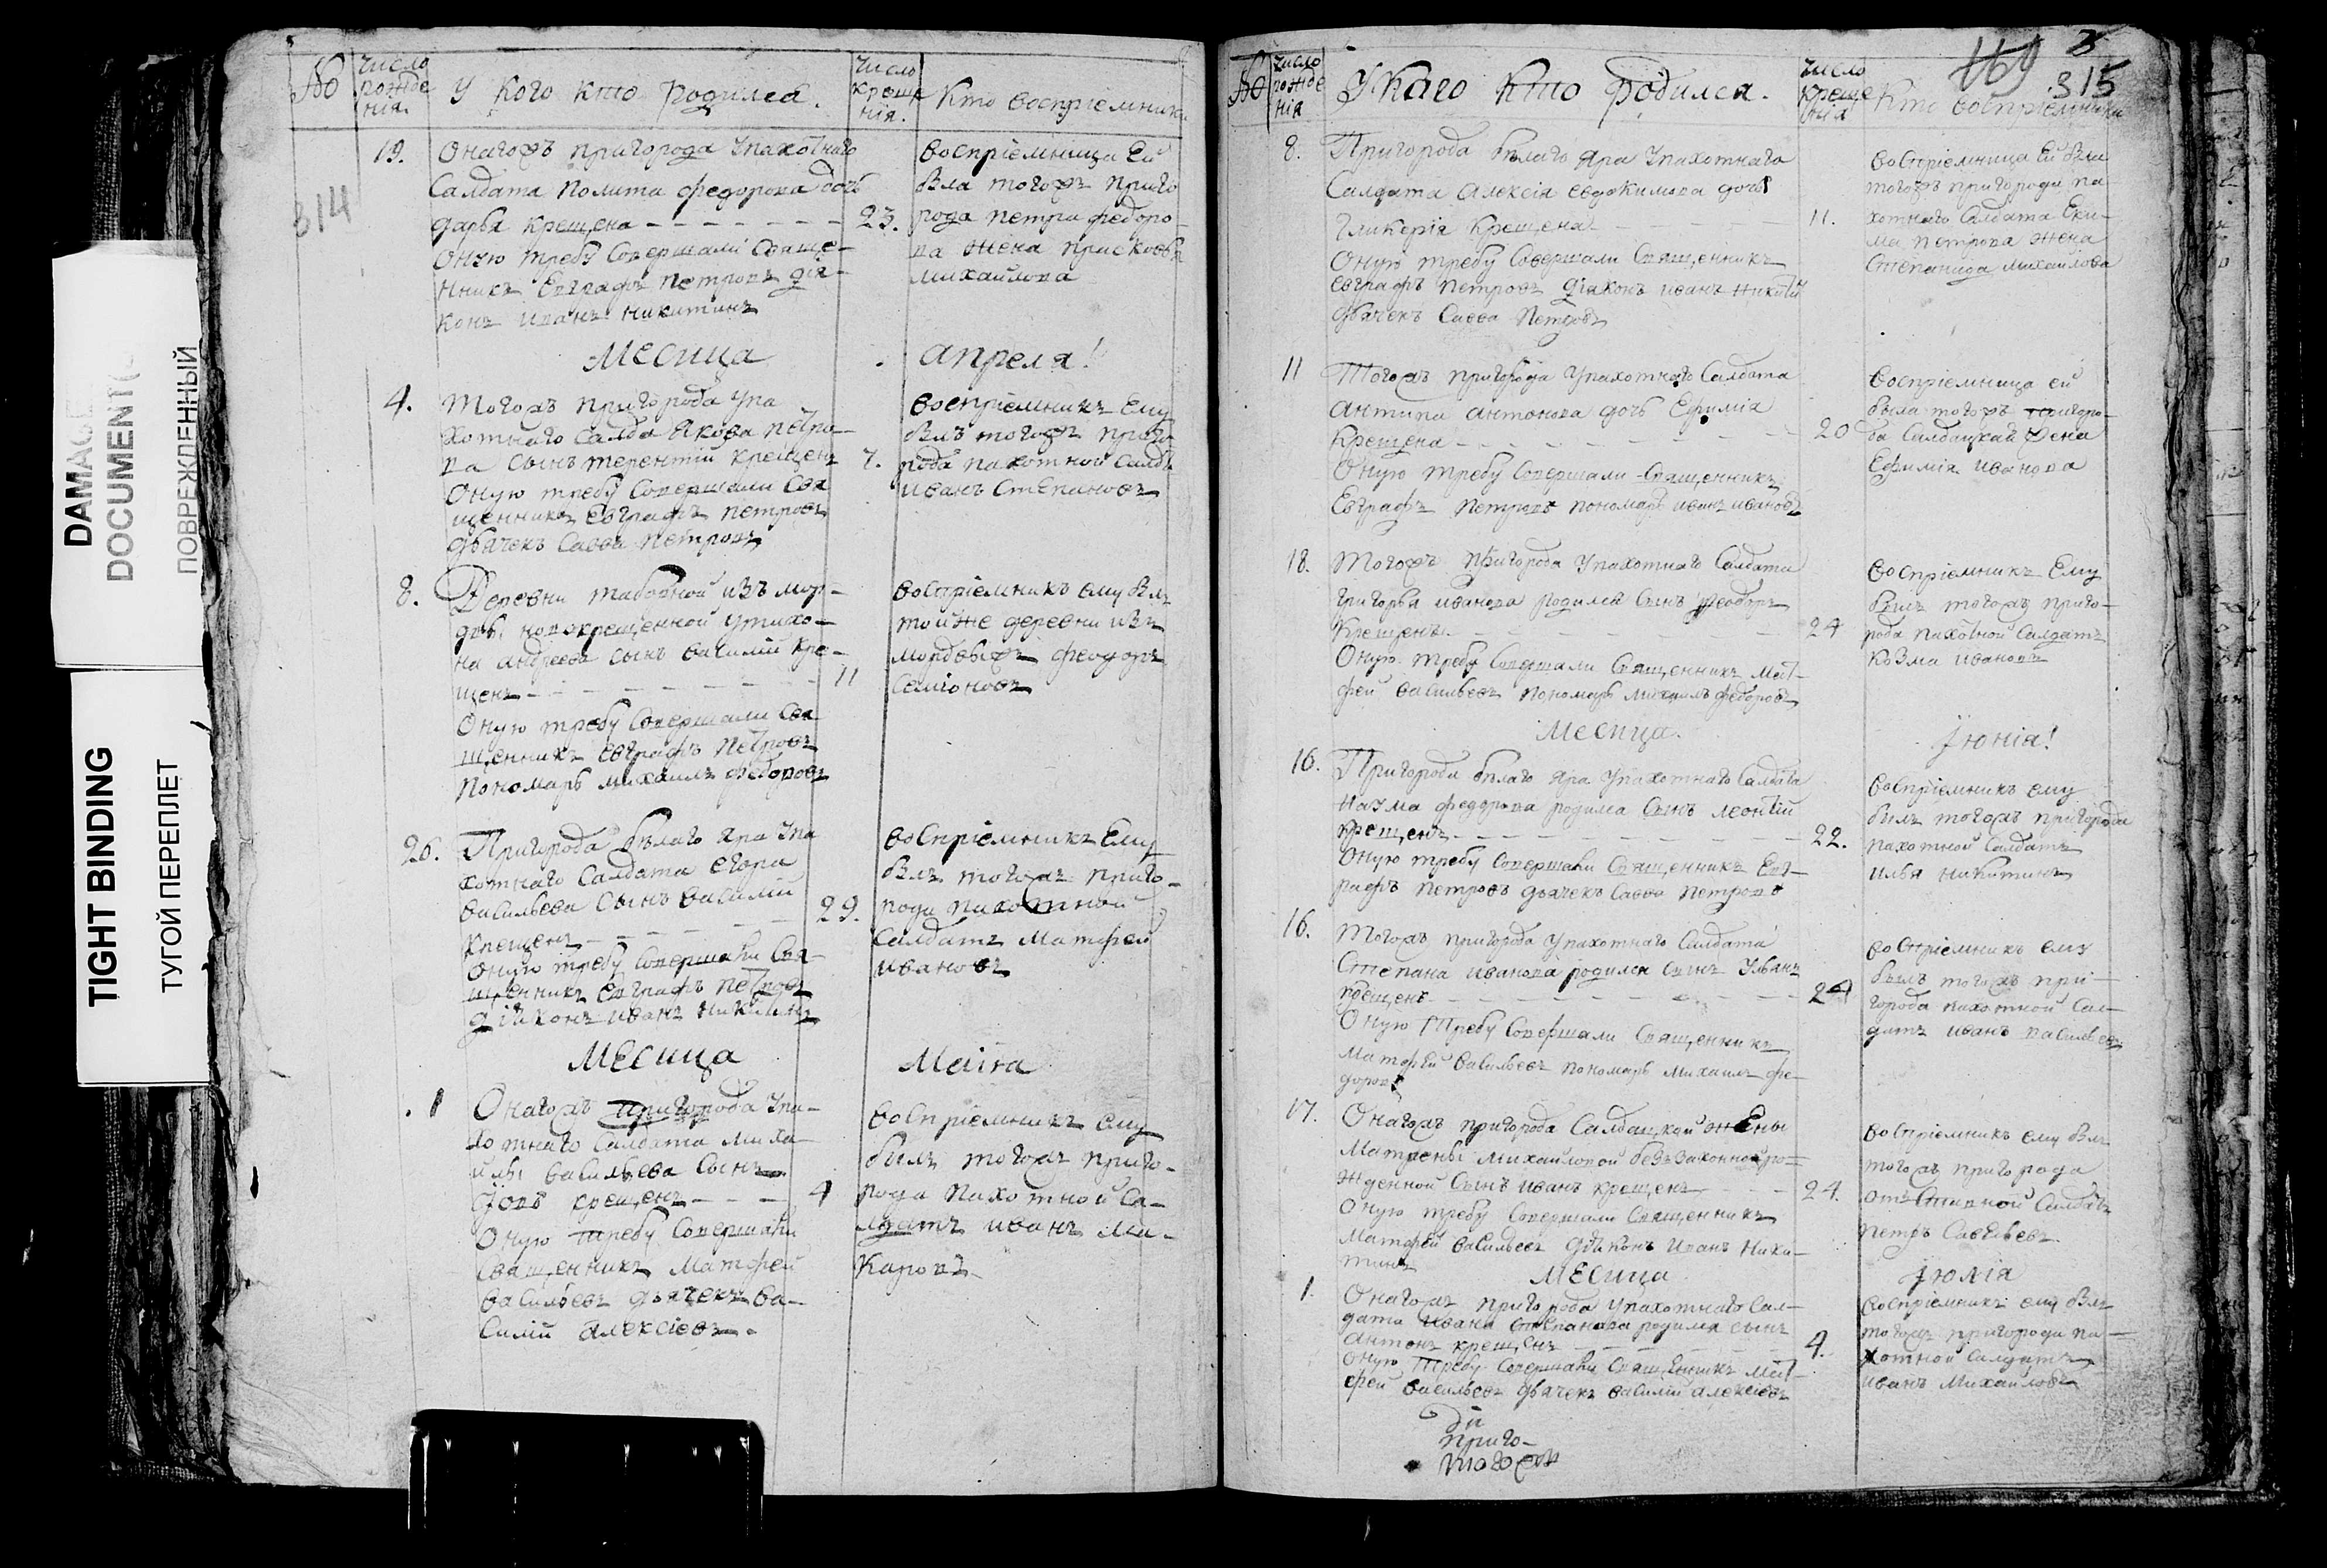 DAMAGE
DOCUMENT(
ПОВРЕЖДЕННЫЙ
TIGHT BINDING
ТУГОЙ ПЕРЕПЛЕТ
314
№
число рожде нія.
У кого кто родился.
число креще нія.
Кто восприемники
19.
Онагожъ пригорода упахотнаго
Салдата Полита федорова дочь
дарья крещена
23.
Оную требу совершали свяще-
нникъ Евграфъ Петровъ діа-
конъ иванъ никитинъ
восприемница Ей
была тогожъ приго
рода петра федоро-
ва жена прасковья
михаилова
Месяца
апреля!
4.
Тогожъ пригорода упа
хотнаго салда Якова петро-
ва сынъ терентий крещенъ
7.
Оную требу совершали свя
щенникъ евграфъ петровъ
дьячекъ савва петровъ
восприемникъ Ему
былъ тогожъ приго
рода пахотной салда
иванъ степановъ
8.
Деревни таборной изъ мор-
двы новокрещенной утихо-
на андреева сынъ василий кре-
щенъ
11
Оную требу совершали свя
щенникъ евграфъ петровъ
пономарь михаилъ федоровъ
восприемникъ ему былъ
тойже деревни изъ
мордвыжъ феодоръ
семионовъ
26.
Пригорода белаго яра упа
хотнаго салдата егора
васильева сынъ василий
крещенъ
29.
Оную требу совершали свя-
щенникъ евграфъ петровъ
діаконъ иванъ никитинъ
восприемникъ Ему
былъ тогожъ приго-
рода пахотной
салдатъ матфей
ивановъ
Месяца
Маія
1
Онагожъ пригорода упа-
хотнаго салдата миха-
йлы васильева сынъ
Іовъ крещенъ
4
Оную требу совершали
священникъ матфей
васильевъ дьячекъ ва-
силий алексіевъ
восприемникъ ему
былъ тогожъ приго-
рода пахотной са-
лдатъ иванъ ма-
каровъ
169
315
№
число рожде нія
У каго кто родился.
число креще нія
Кто восприемники
8.
Пригорода белаго яра упахотнаго
салдата алексія евдокимова дочь
гликерія крещена
11.
Оную требу совершали священникъ
евграфъ петровъ діаконъ иванъ никитин
дьячекъ савва петровъ
восприемница ей была
тогожъ пригорода па-
хотнаго салдата Еки-
ма петрова жена
степанида михаилова
11
Тогожъ пригорода упахотнаго салдата
антипа антонова дочь Ефимія
крещена
20
Оную требу совершали священникъ
Евграфъ петровъ пономарь иванъ ивановъ
восприемница ей
была тогожъ пригоро-
да салдацкая жена
Ефимія иванова
18.
Тогожъ пригорода упахотнаго салдата
григорья иванова родился сынъ феодоръ
крещенъ
24
Оную требу совершали священникъ мат-
фей васильевъ пономарь михаилъ федоровъ
восприемникъ Ему
былъ тогожъ приго-
рода пахотной салдатъ
козма ивановъ
Месяца
Іюнія!
16.
Пригорода белаго яра упахотнаго салдата
федорова родился сынъ леонтий
крещенъ
22.
Оную требу совершали священникъ Евг-
рафъ петровъ дьячекъ савва петровъ
восприемникъ ему
былъ тогожъ пригорода
пахотной салдатъ
илья никитинъ
16.
Тогожъ пригорода упахотнаго салдата
степана иванова родился сынъ ульянъ
крещенъ
Оную требу совершали священникъ
матфей васильевъ пономарь михаилъ фе-
доровъ
восприемникъ ему
былъ тогожъ при-
города пахотной сал-
датъ иванъ васильевъ
17.
Онагожъ пригорода салдацкой жены
матрены михаиловой беззаконноро-
жденной сынъ иванъ крещенъ
24.
Оную требу совершали священникъ
матфей васильевъ діаконъ иванъ ники-
тинъ
восприемникъ ему былъ
тогожъ пригорода
отставной салдатъ
петръ савельевъ
Месяца
Іюлія
1.
Онагожъ пригорода упахотнаго сал-
дата ивана степанова родился сынъ
антонъ крещенъ
4.
Оную требу совершали священникъ мат-
фей васильевъ дьячекъ василий алексіевъ
восприемникъ ему былъ
тогожъ пригорода па-
хотной салдатъ
иванъ михаиловъ
приго-
тогожъ